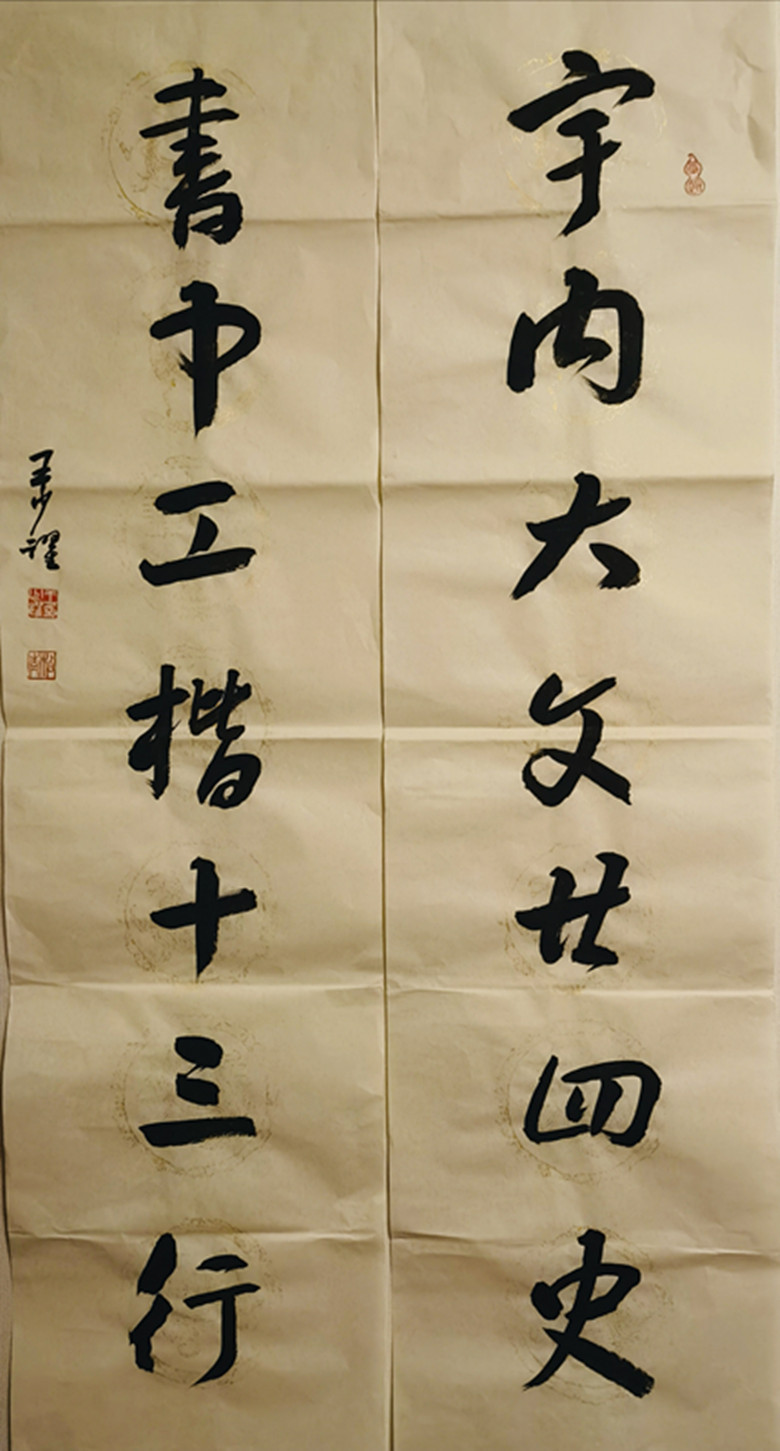 宇内大文廿四史
書中工楷十三行